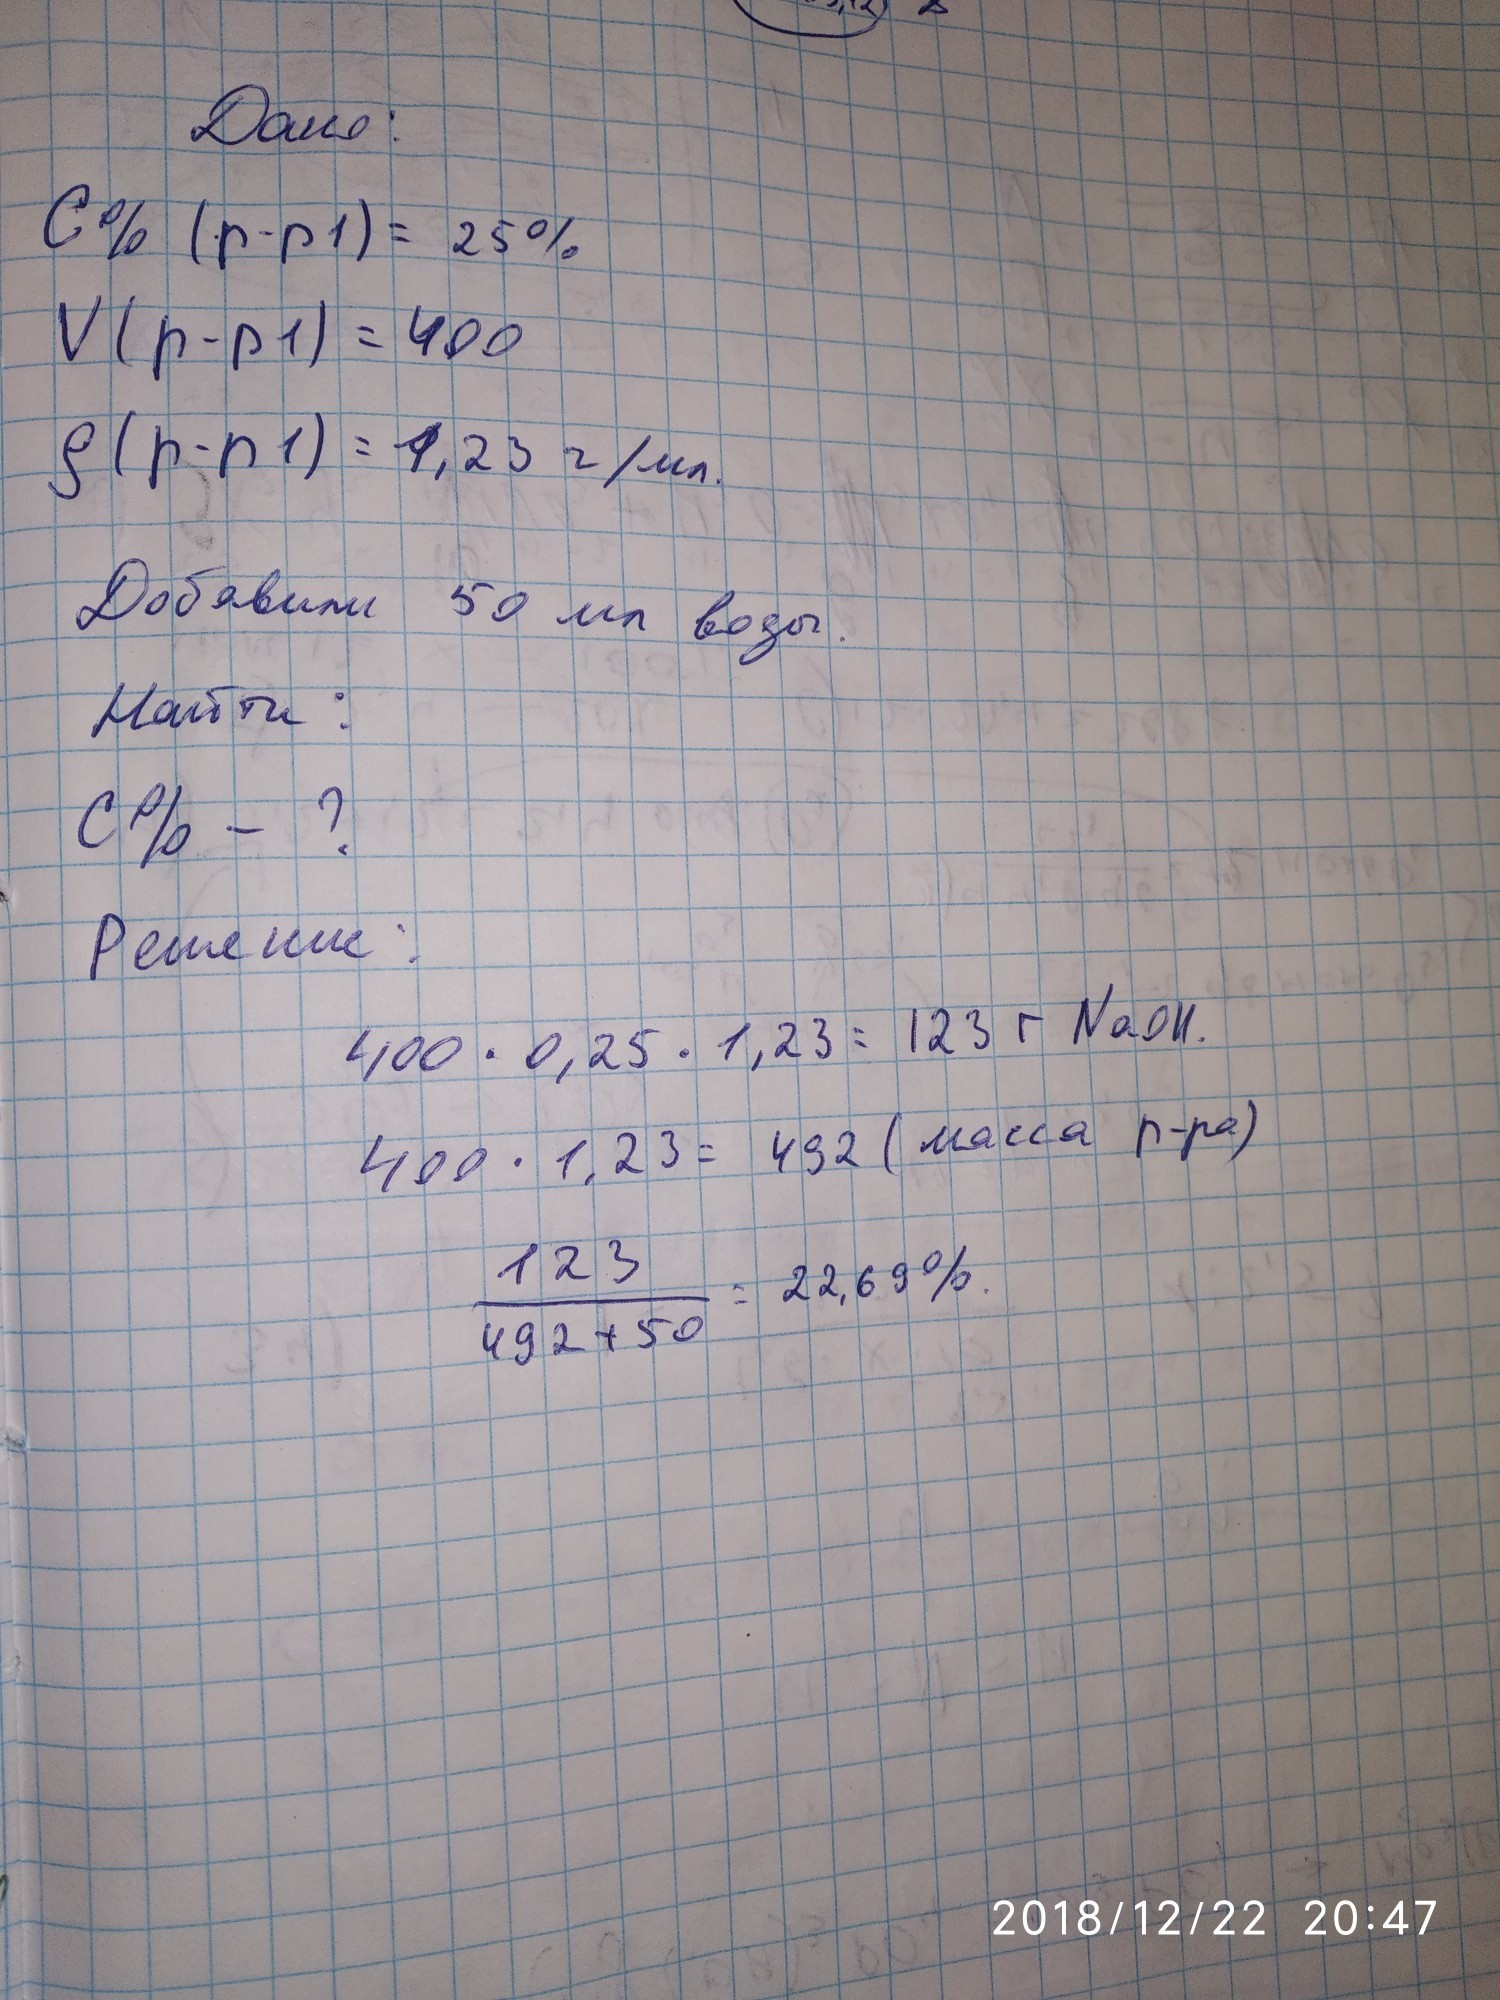 Дано:
C% (р-р1) = 25%
V(р-р1) = 400
ρ(р-р1) = 1,23 г/мл.
Добавили 50 мл воды.
Найти:
C% - ?
Решение:
400 · 0,25 · 1,23 = 123 г NaOH.
400 · 1,23 = 492 (масса р-ра)
123
492+50
= 22,69%.
2018/12/22 20:47